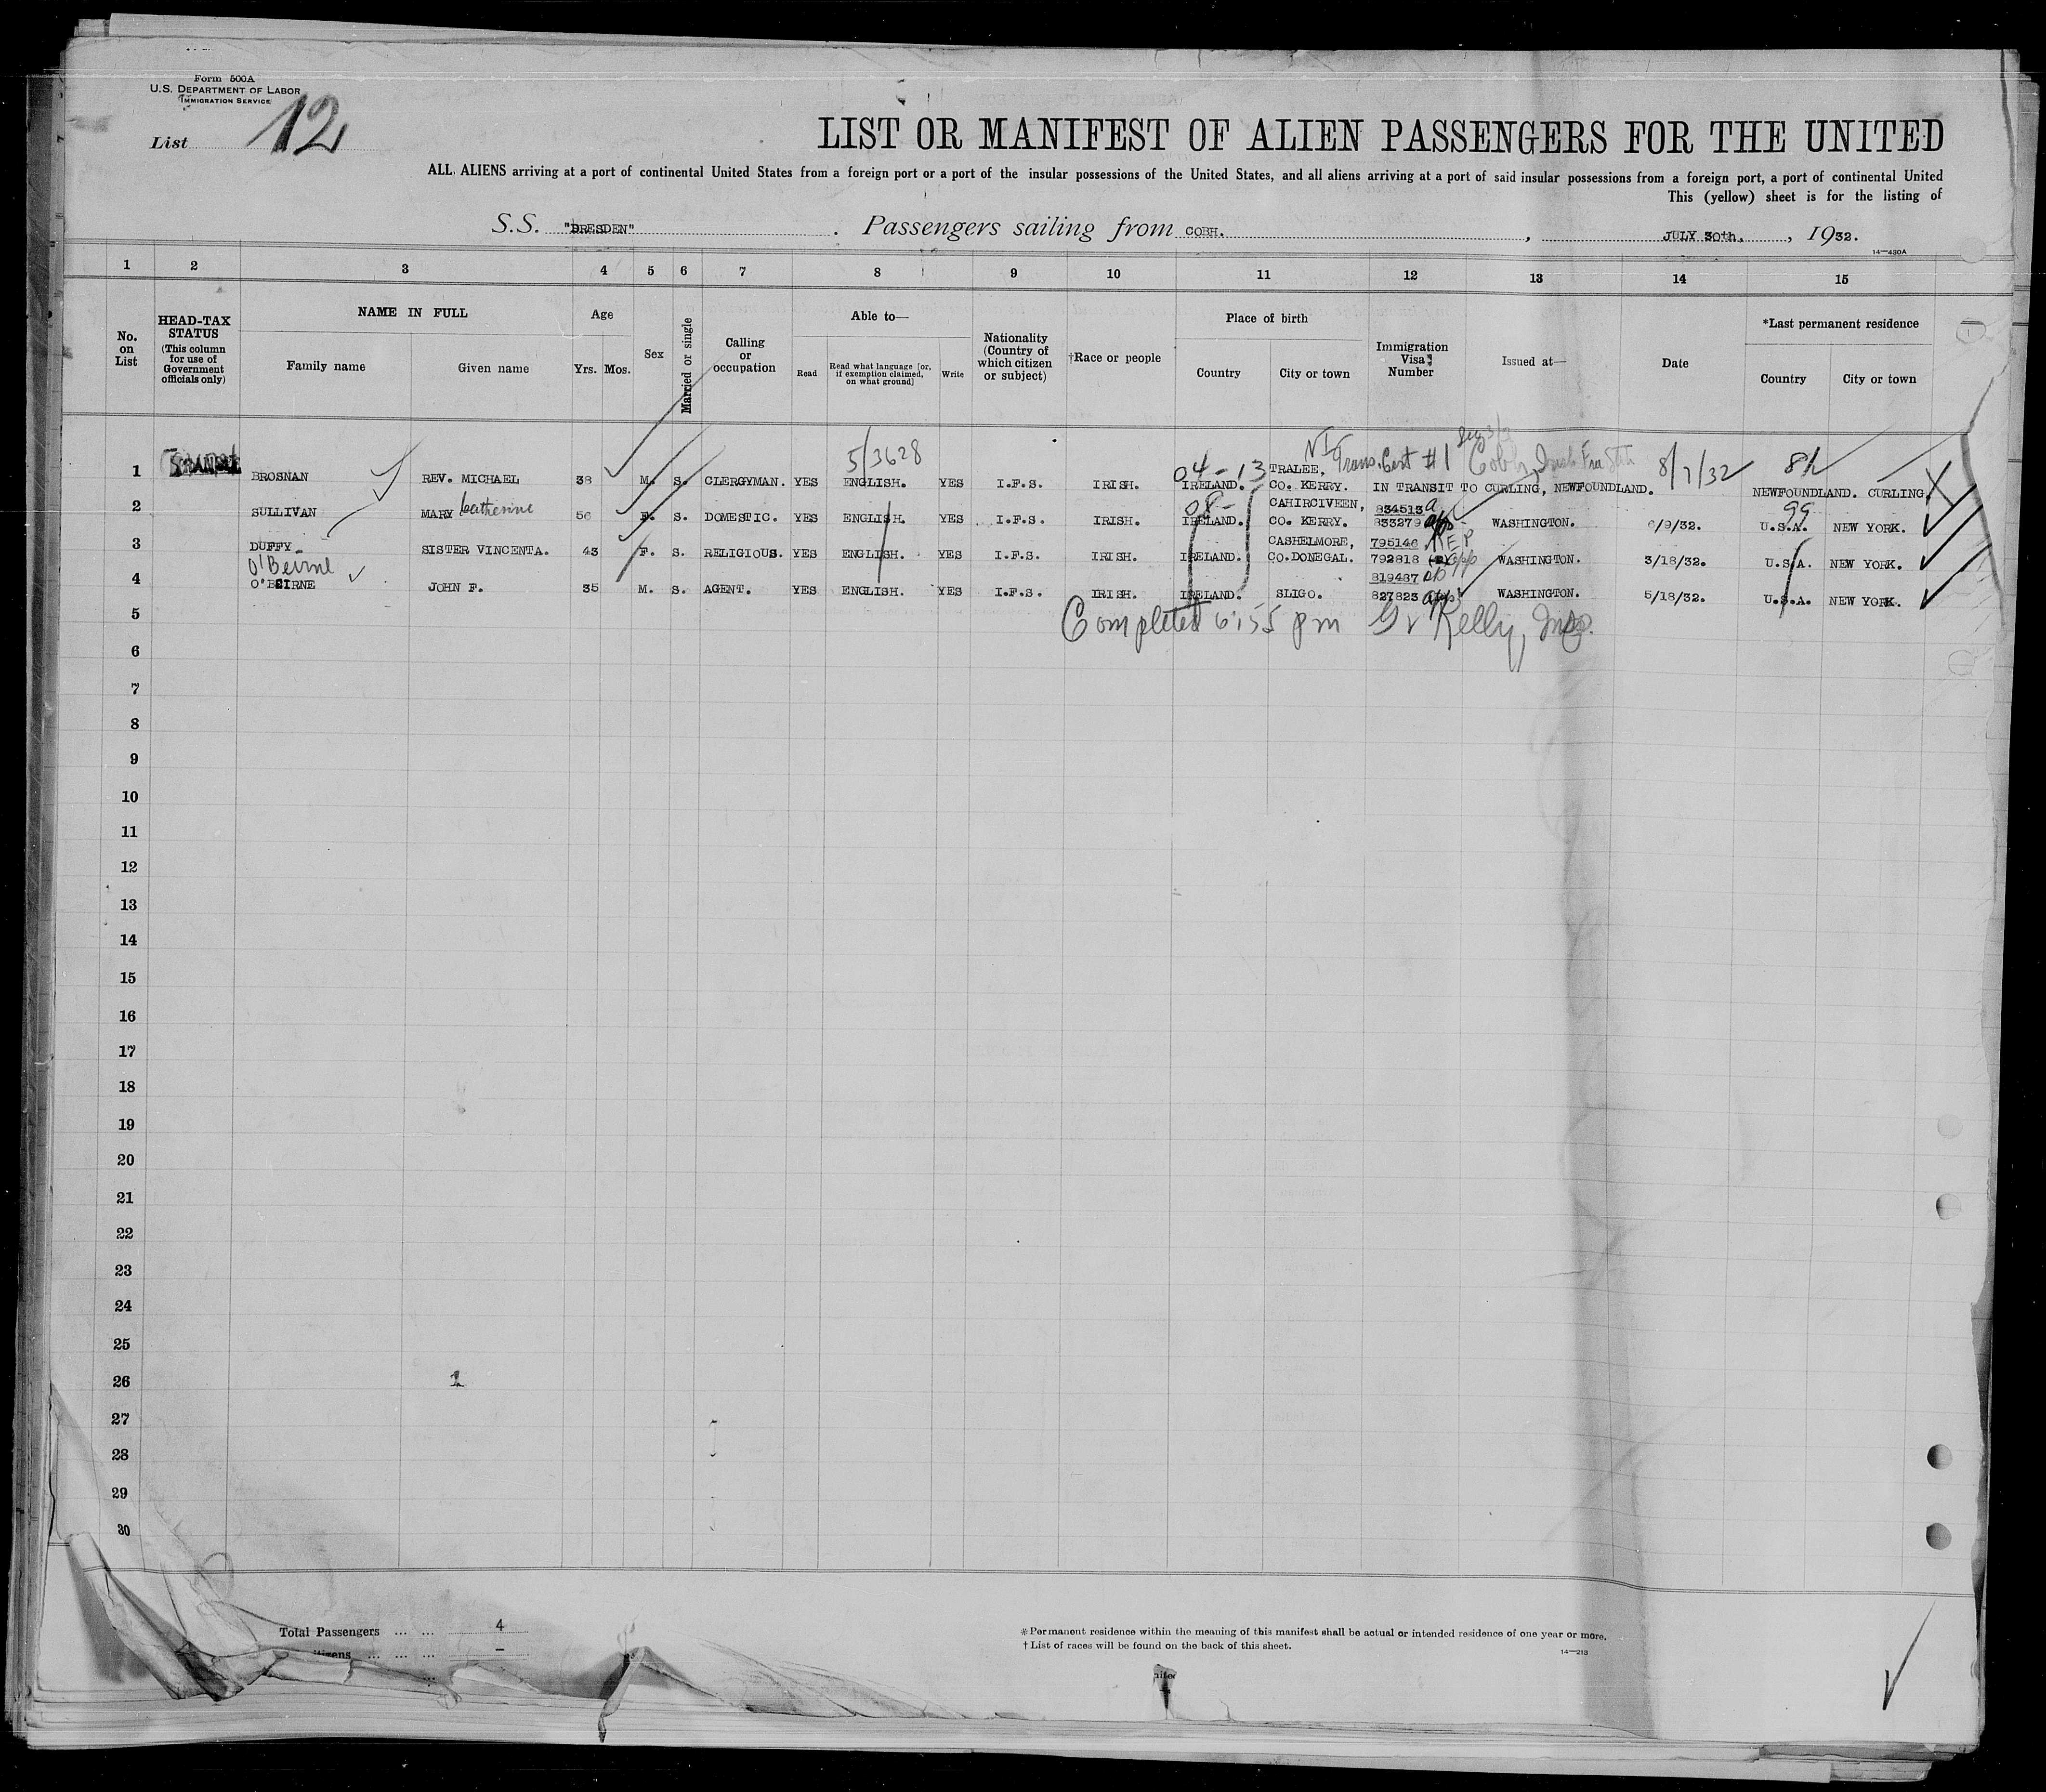 Form 500A
U.S. DEPARTMENT OF LABOR
IMMIGRATION SERVICE
List 12
LIST OR MANIFEST OF ALIEN PASSENGERS FOR THE UNITED
ALL ALIENS arriving at a port of continental United States from a foreign port or a port of the insular possessions of the United States, and all aliens arriving at a port of said insular possessions from a foreign port, a port of continental United
This (yellow) sheet is for the listing of
S.S. "DRESDEN" . Passengers sailing from COBH. , JULY 30th. , 1932.
14—430A
1 2 3 4 5 6 7 8 9 10 11 12 13 14 15
No. on List
HEAD-TAX STATUS (This column for use of Government officials only)
NAME IN FULL
Family name Given name
Age
Yrs. Mos.
Sex
Married or single
Calling or occupation
Able to—
Read Read what language [or, if exemption claimed, on what ground] Write
Nationality (Country of which citizen or subject)
†Race or people
Place of birth
Country City or town
Immigration Visa Number
Issued at—
Date
*Last permanent residence
Country City or town
5/3628 04-13 Trans. Cert #1 Cobh, 8/7/32
1 BROSNAN REV. MICHAEL 38 M. S. CLERGYMAN. YES ENGLISH. YES I.F.S. IRISH. IRELAND. TRALEE, CO. KERRY. IN TRANSIT TO CURLING, NEWFOUNDLAND. NEWFOUNDLAND. CURLING.
08- 99
2 SULLIVAN MARY Catherine 56 F. S. DOMESTIC. YES ENGLISH. YES I.F.S. IRISH. IRELAND. CAHIRCIVEEN, CO. KERRY. 834513 833279 WASHINGTON. 6/9/32. U.S.A. NEW YORK.
3 DUFFY SISTER VINCENTA. 43 F. S. RELIGIOUS. YES ENGLISH. YES I.F.S. IRISH. IRELAND. CASHELMORE, CO.DONEGAL. 795146 REP 792818 WASHINGTON. 3/18/32. U.S.A. NEW YORK.
O'Beirne
4 O'BEIRNE JOHN F. 35 M. S. AGENT. YES ENGLISH. YES I.F.S. IRISH. IRELAND. SLIGO. 819487 827823 WASHINGTON. 5/18/32. U.S.A. NEW YORK.
5 Completed 6:55 pm Kelly, Insp.
6
7
8
9
10
11
12
13
14
15
16
17
18
19
20
21
22
23
24
25
26 1
27
28
29
30
Total Passengers ... ... 4
tizens ... ... ... –
*Permanent residence within the meaning of this manifest shall be actual or intended residence of one year or more.
†List of races will be found on the back of this sheet.
14—213